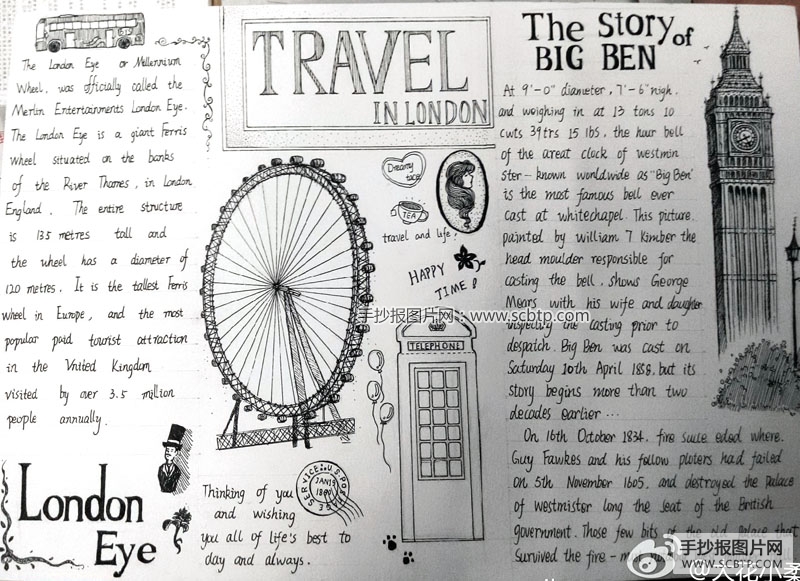 The London Eye or Millennium
Wheel, was officially called the
Merlin Entertainments London Eye.
The London Eye is a giant Ferris
wheel situated on the banks
of the River Thames, in London
England. The entire structure
is 135 metres tall and
the wheel has a diameter of
120 metres. It is the tallest Ferris
wheel in Europe, and the most
popular paid tourist attraction
in the United Kingdom
visited by over 3.5 million
people annually.
London
Eye
TRAVEL
IN LONDON
Dreamy
TEA
travel and life!
HAPPY
TIME!
手抄报图片网：www.scbtp.com
TELEPHONE
SERVICE U.S. POSTAGE
JAN 15
Thinking of you
and wishing
you all of life's best to
day and always.
The Story of
BIG BEN
At 9'-0" diameter, 7'-6" high,
and weighing in at 13 tons 10
cwts 39trs 15 lbs, the hour bell
of the great clock of westmin
ster - known worldwide as "Big Ben"
is the most famous bell ever
cast at whitechapel. This picture,
painted by william T. Kimber the
head moulder responsible for
casting the bell, shows George
Mears with his wife and daughter
inspecting the casting prior to
despatch. Big Ben was cast on
Saturday 10th April 1858, but its
story begins more than two
decades earlier...
On 16th October 1834, fire succeeded where
Guy Fawkes and his follow ploters had failed
on 5th November 1605, and destroyed the Palace
of westmister long the seat of the British
government. Those few bits of the old palace that
survived the fire -
手抄报图片网
WWW.SCBTP.COM